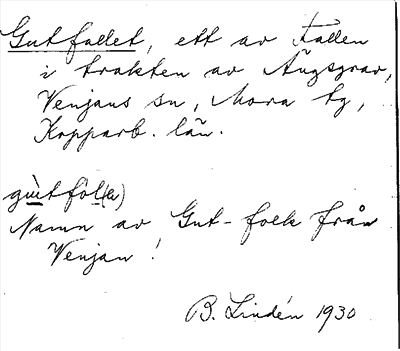 Gutfallet, ett av Fallen
i trakten av Ängsgrav,
Venjans sn, Mora tg,
Kopparb. län.
gùtfòl(k)
Namn av Gut-folk från
Venjan!
B. Lindén 1930